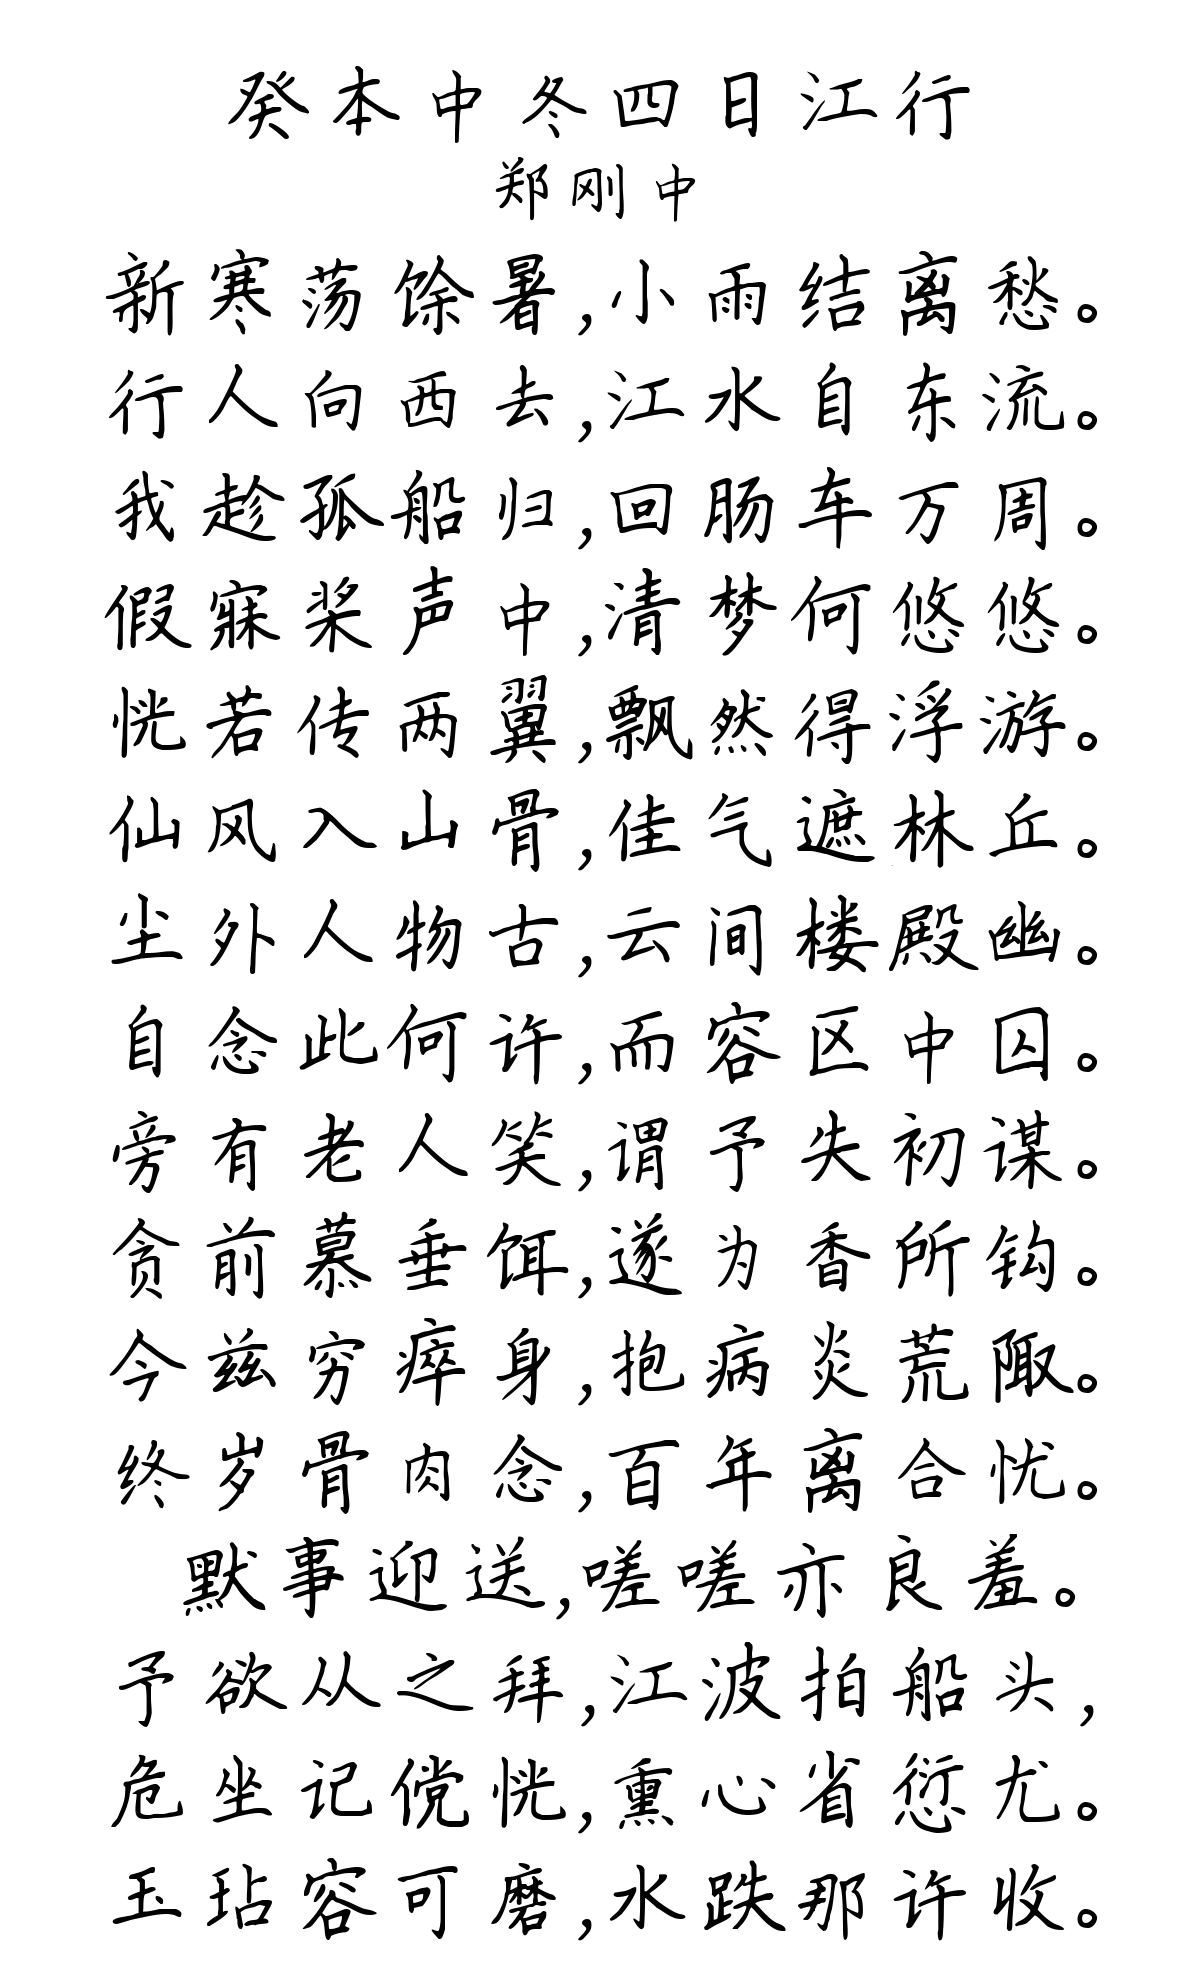 癸本中冬四日江行
郑刚中
新寒荡馀暑,小雨结离愁。
行人向西去,江水自东流。
我趁孤船归,回肠车万周。
假寐桨声中,清梦何悠悠。
恍若传两翼,飘然得浮游。
仙风入山骨,佳气遮林丘。
尘外人物古,云间楼殿幽。
自念此何许,而容区中囚。
旁有老人笑,谓予失初谋。
贪前慕垂饵,遂为香所钩。
今兹穷瘁身,抱病炎荒陬。
终岁骨肉念,百年离合忧。
默事迎送,嗟嗟亦良羞。
予欲从之拜,江波拍船头,
危坐记傥恍,熏心省愆尤。
玉玷容可磨,水跌那许收。